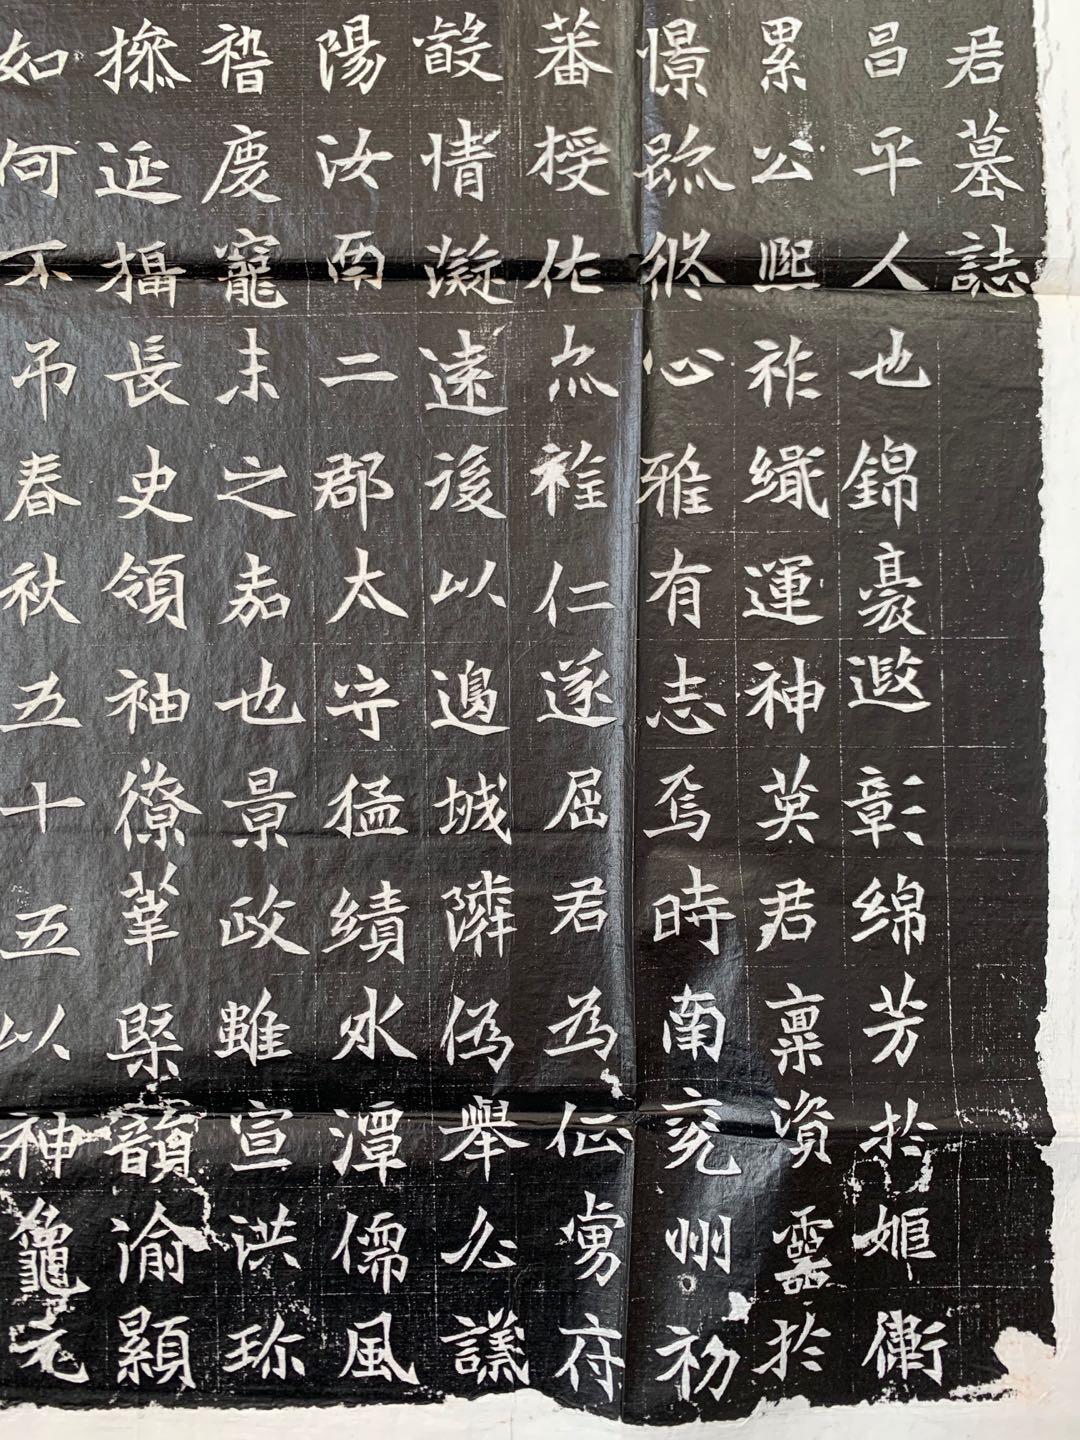 君墓誌
昌平人也錦裘遐彰綿芳於姬衛
累公熙祚織運神英君稟資靈於
憬跡脩心雅有志焉時南兗州初
蕃授佐亦難仁遂屈君為征虜府
情凝遠後以邊城隣偽舉允議
陽汝南二郡太守猛績水潭儒風
慶寵末之嘉也景政雖宣洪珎
掾延攝長史領袖僚華槩韻渝顯
如何不弔春秋五十五以神龜元